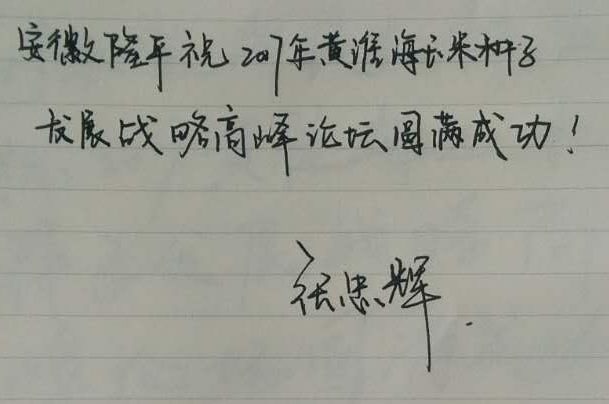 安徽隆平祝2017年黄淮海玉米种子
发展战略高峰论坛圆满成功!
张忠辉